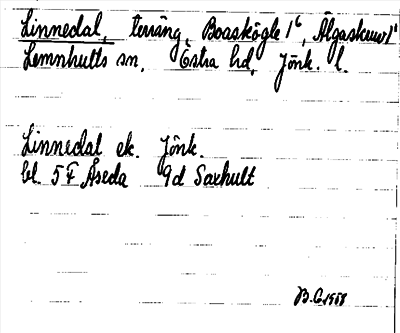 Linnedal, terräng, Boaskögle 1⁶, Älgaskruv 1¹
Lemnhults sn, Östra hd, Jönk. l.
Linnedal ek. Jönk.
bl 5 F Åseda 9d Saxhult
B.G. 1958